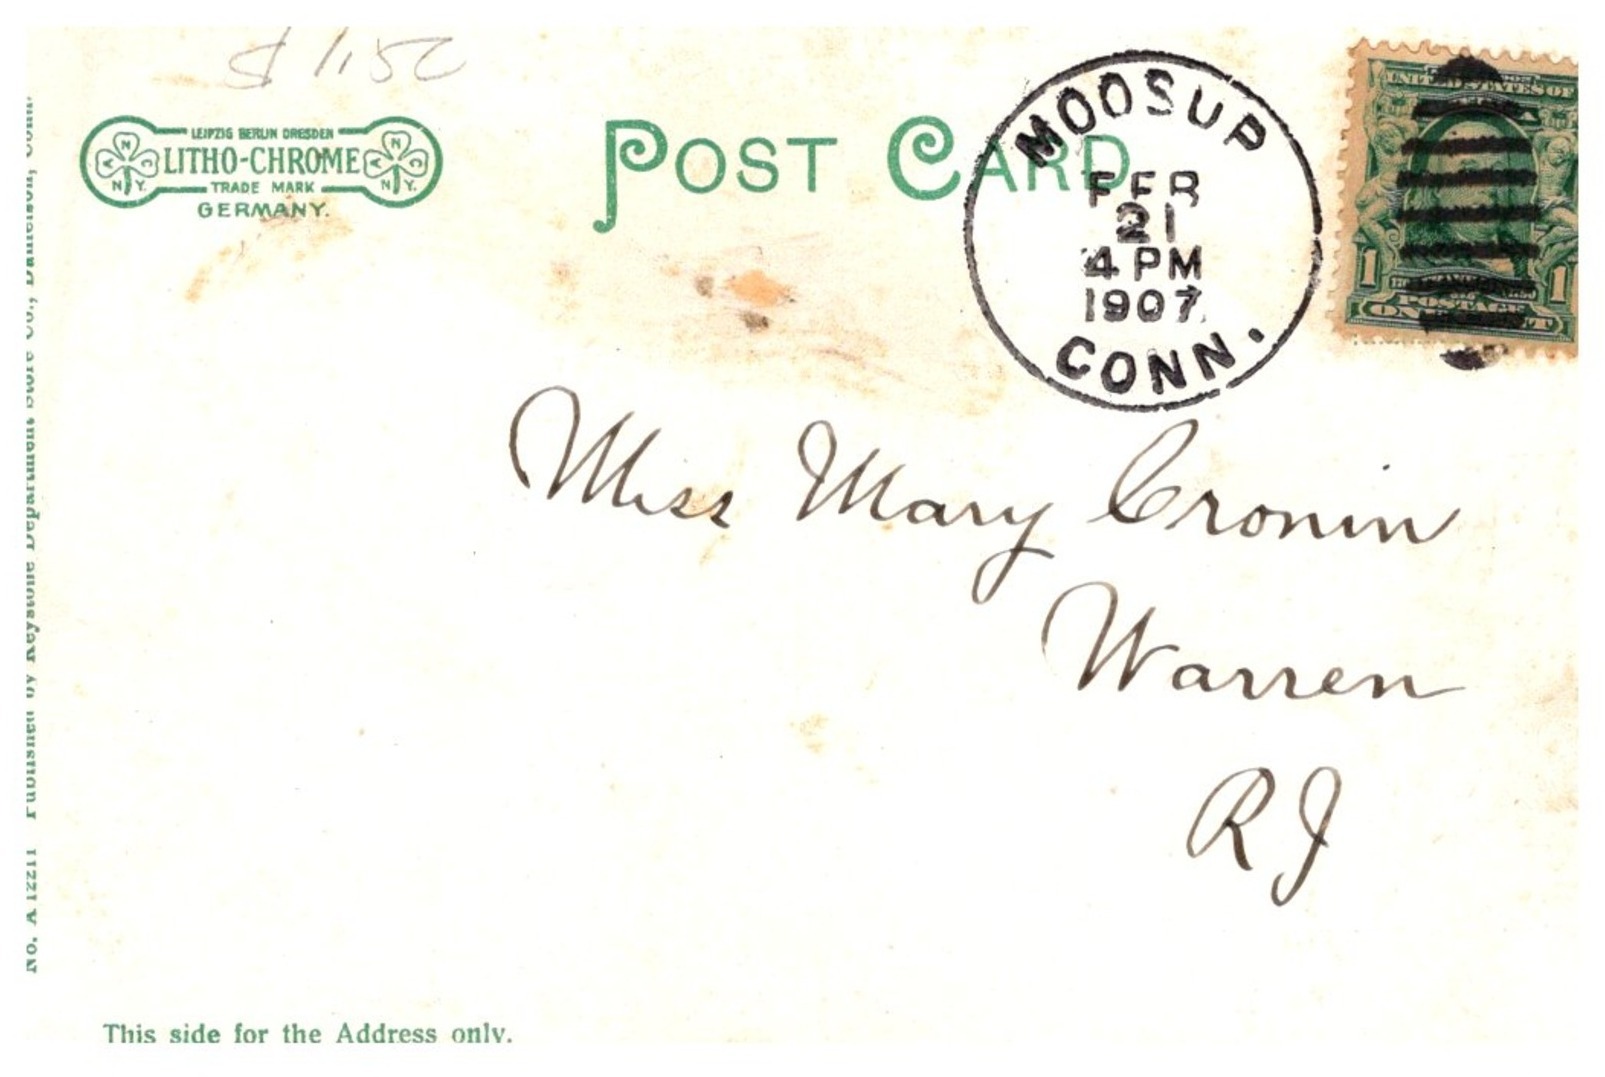 $ 1.50
LEIPZIG BERLIN DRESDEN
LITHO-CHROME
TRADE MARK
GERMANY.
N A C N.Y.
N A C N.Y.
POST CARD
MOOSUP
FEB
21
4 PM
1907
CONN.
UNITED STATES OF
1 1
POSTAGE
ONE CENT
Miss Mary Cronin
Warren
RI
No. A 12211 Published by Keystone Department Store Co., Danielson, Conn.
This side for the Address only.